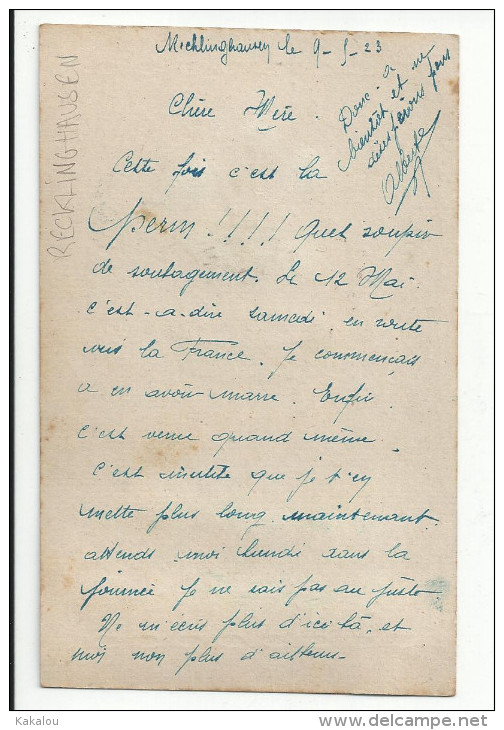 Recklinghausen le 9-5-23
Chère Mère.
Cette fois c'est la
perm !!!! Quel soupir
de soulagement. Le 12 Mai
c'est-a-dire samedi en route
vers la France. Je commençais
a en avoir marre. Enfin
c'est venu quand même.
C'est inutile que je t'en
mette plus long maintenant.
attends moi lundi dans la
journée je ne sais pas au juste
Ne m'écris plus d'ici là, et
moi non plus d'ailleurs.
Donc a
bientôt et ne
désespérons pas
Albert
RECKLINGHAUSEN
Kakalou
www.delcampe.net